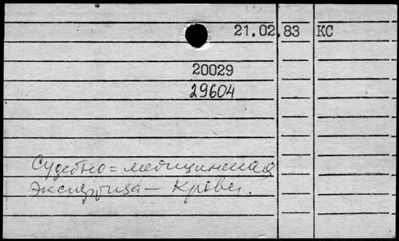 21.02.83 КС
20029
29604
Судебно=медицинская
экспертиза - Крови.